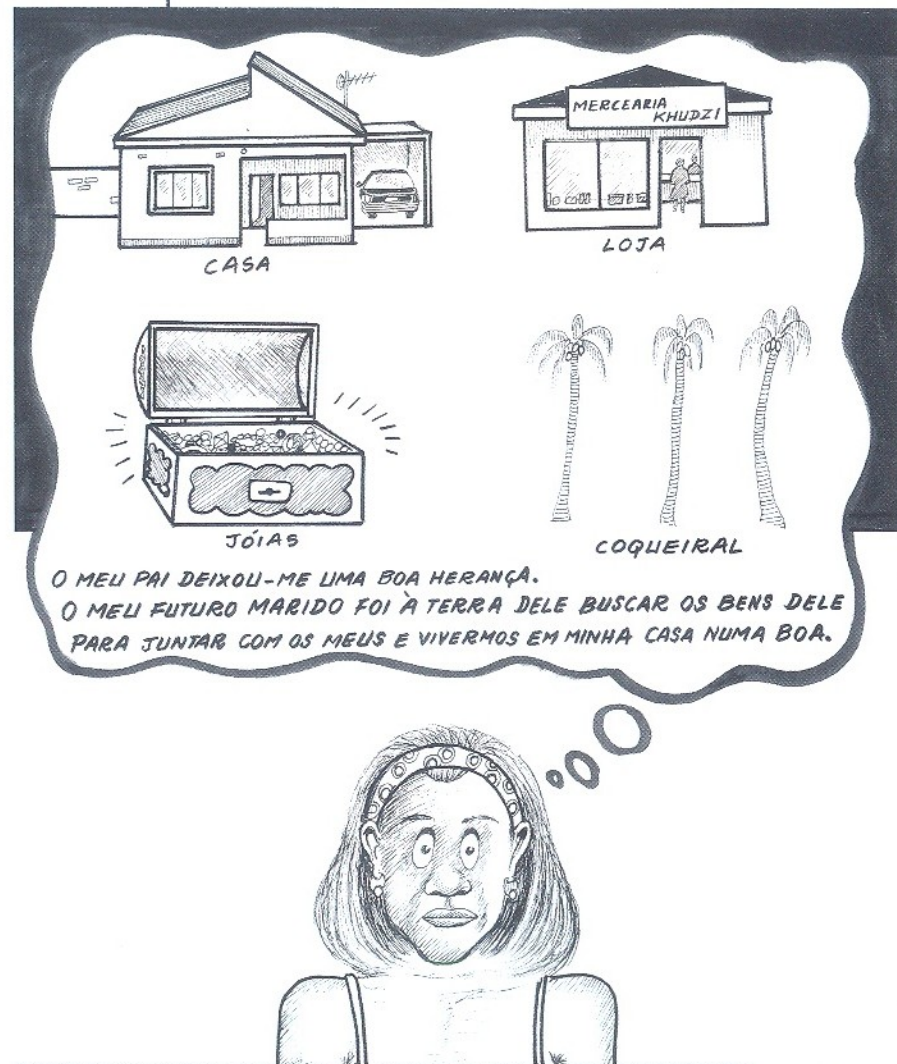 MERCEARIA
KHUDZI
CASA
LOJA
JÓIAS
COQUEIRAL
O MEU PAI DEIXOU-ME UMA BOA HERANÇA.
O MEU FUTURO MARIDO FOI À TERRA DELE BUSCAR OS BENS DELE
PARA JUNTAR COM OS MEUS E VIVERMOS EM MINHA CASA NUMA BOA.